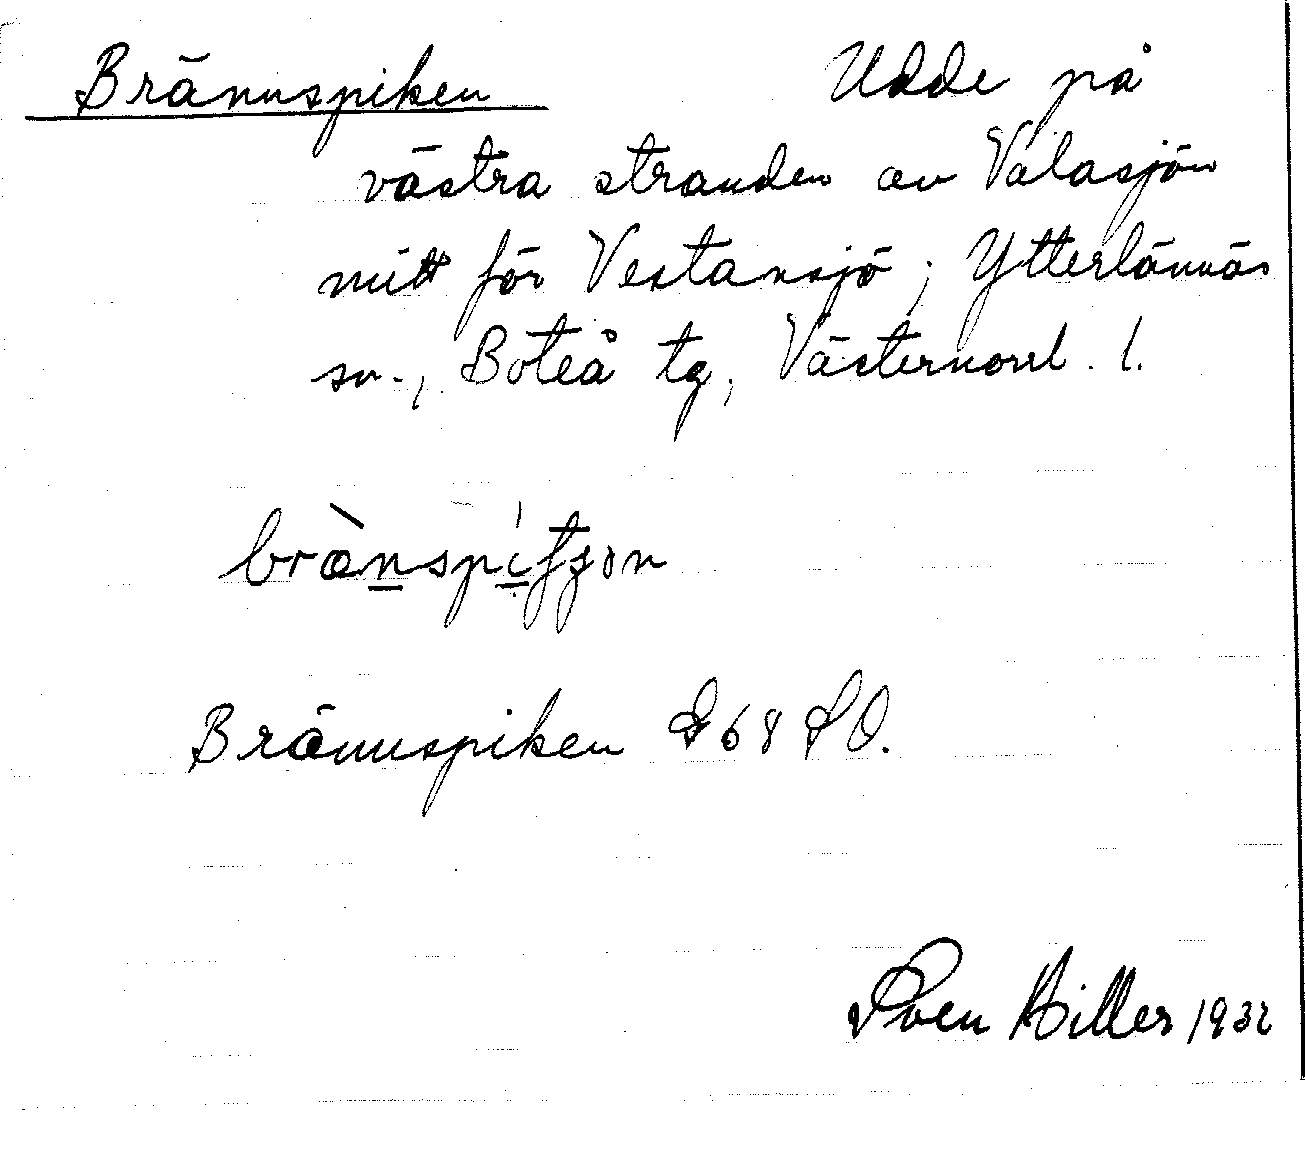 Brännspiken Udde på
västra stranden av Valasjön
mitt för Vestansjö; Ytterlännäs
sn., Boteå tg, Västernorrl. l.
Brännspiken 68 SO.
Sven Hiller 1932